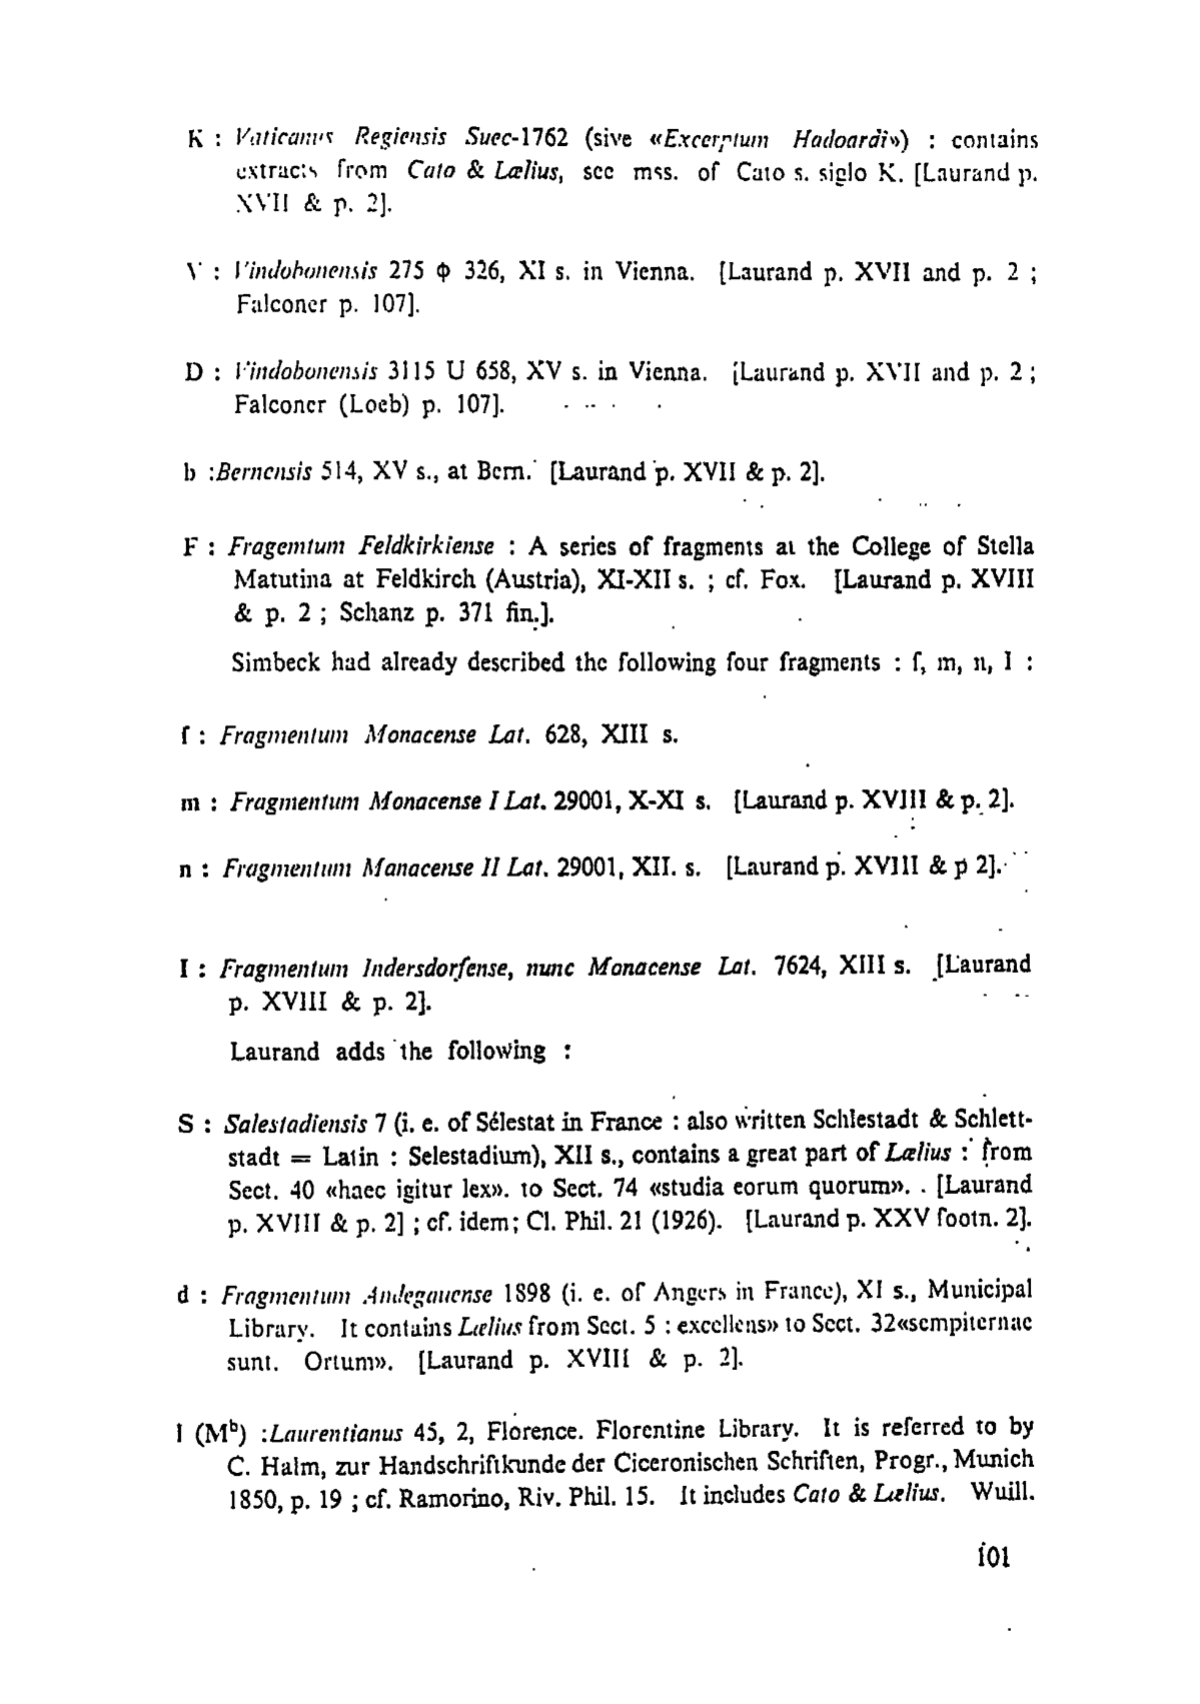 K : Vaticanus Regiensis Suec-1762 (sive «Excerptum Hadoardi») : contains
extracts from Cato & Lælius, see mss. of Cato s. siglo K. [Laurand p.
XVII & p. 2].
V : Vindobonensis 275 Φ 326, XI s. in Vienna. [Laurand p. XVII and p. 2 ;
Falconer p. 107].
D : Vindobonensis 3115 U 658, XV s. in Vienna. [Laurand p. XVII and p. 2 ;
Falconer (Loeb) p. 107].
b :Bernensis 514, XV s., at Bern. [Laurand p. XVII & p. 2].
F : Fragemtum Feldkirkiense : A series of fragments at the College of Stella
Matutina at Feldkirch (Austria), XI-XII s. ; cf. Fox. [Laurand p. XVIII
& p. 2 ; Schanz p. 371 fin.].
Simbeck had already described the following four fragments : f, m, n, I :
f : Fragmentum Monacense Lat. 628, XIII s.
m : Fragmentum Monacense I Lat. 29001, X-XI s. [Laurand p. XVIII & p. 2].
n : Fragmentum Manacense II Lat. 29001, XII. s. [Laurand p. XVIII & p 2].
I : Fragmentum Indersdorfense, nunc Monacense Lat. 7624, XIII s. [Laurand
p. XVIII & p. 2].
Laurand adds the following :
S : Salestadiensis 7 (i. e. of Sélestat in France : also written Schlestadt & Schlett-
stadt = Latin : Selestadium), XII s., contains a great part of Lælius : from
Sect. 40 «haec igitur lex». to Sect. 74 «studia eorum quorum». . [Laurand
p. XVIII & p. 2] ; cf. idem; Cl. Phil. 21 (1926). [Laurand p. XXV footn. 2].
d : Fragmentum Andegauense 1898 (i. e. of Angers in France), XI s., Municipal
Library. It contains Lælius from Sect. 5 : excellens» to Sect. 32«sempiternae
sunt. Ortum». [Laurand p. XVIII & p. 2].
l (Mᵇ) :Laurentianus 45, 2, Florence. Florentine Library. It is referred to by
C. Halm, zur Handschriftkunde der Ciceronischen Schriften, Progr., Munich
1850, p. 19 ; cf. Ramorino, Riv. Phil. 15. It includes Cato & Lælius. Wuill.
101